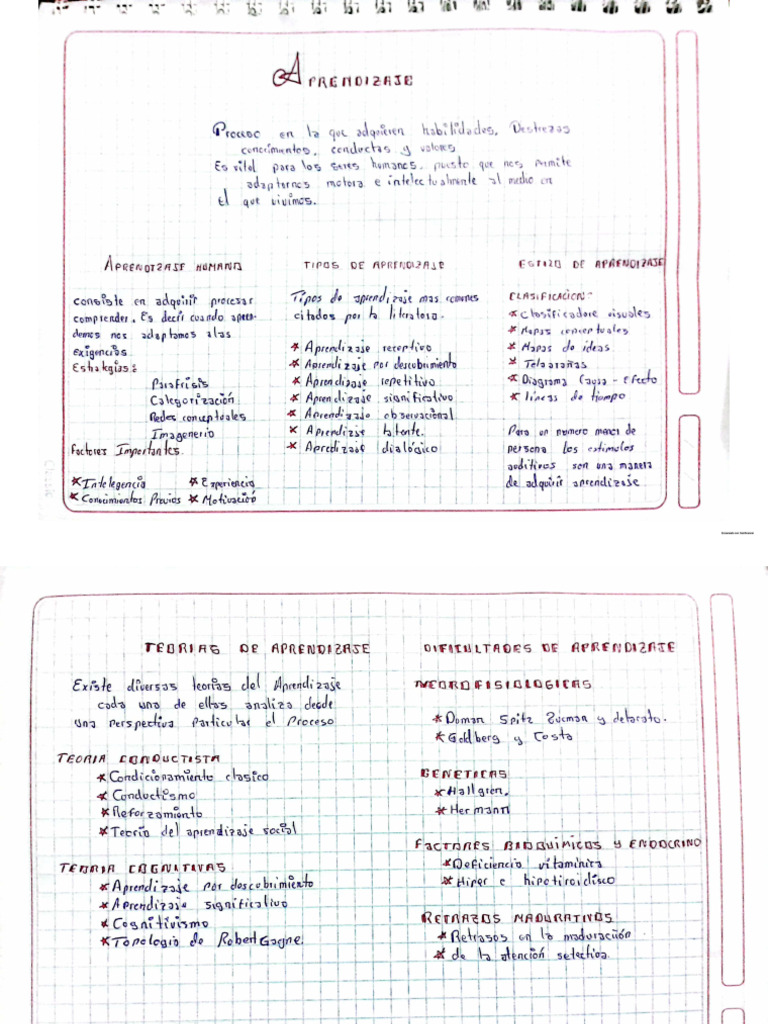 APRENDIZAJE
Proceso en la que adquieren habilidades, Destrezas
conocimientos, conductas y valores
Es vital para los seres humanos, puesto que nos permite
adaptarnos motora e intelectualmente al medio en
el que vivimos.
APRENDIZAJE HUMANO
consiste en adquirir procesar
comprender. Es decir cuando apren-
demos nos adaptamos a las
exigencias
Estrategias:
Parafrisis
Categorización
Redes conceptuales
Imagenerio
Factores Importantes.
* Intelegencia * Experiencia
* Conocimientos Previos * Motivación
TIPOS DE APRENDIZAJE
Tipos de aprendizaje mas comunes
citados por la literatura.
* Aprendizaje receptivo
* Aprendizaje por descubrimiento
* Aprendizaje repetitivo
* Aprendizaje significativo
* Aprendizaje observacional
* Aprendizaje latente.
* Apredizaje dialógico
ESTIZO DE APRENDIZAJE
CLASIFICACION:
* Clasificadore visuales
* Mapas conceptuales
* Mapas de ideas
* Telarañas
* Diagrama Causa - Efecto
* líneas de tiempo
Para un número menos de
persona los estimulos
auditivos son una manera
de adquirir aprendizaje
Escaneado con CamScanner
TEORIAS DE APRENDIZAJE
Existe diversas teorías del Aprendizaje
cada una de ellas analiza desde
una perspectiva particular el Proceso
TEORIA CONDUCTISTA
* Condicionamiento clasico
* Conductismo
* Reforzamiento
* Teoría del aprendizaje social
TEORIA COGNITIVAS
* Aprendizaje por descubrimiento
* Aprendizaje significativo
* Cognitivismo
* Topologia de Robert Gagne.
DIFICULTADES DE APRENDIZAJE
NEUROFISIOLOGICAS
* Doman Spitz Zucman y delarato.
* Goldberg y Costa
GENETICAS
* Hallgren.
* Hermann
FACTORES BIOQUIMICOS Y ENDOCRINO
* Deficiencia vitaminica
* Hiper e hipotiroidisco
RETRAZOS MADURATIVOS
* Retrasos en la maduración
* de la atención selectiva.